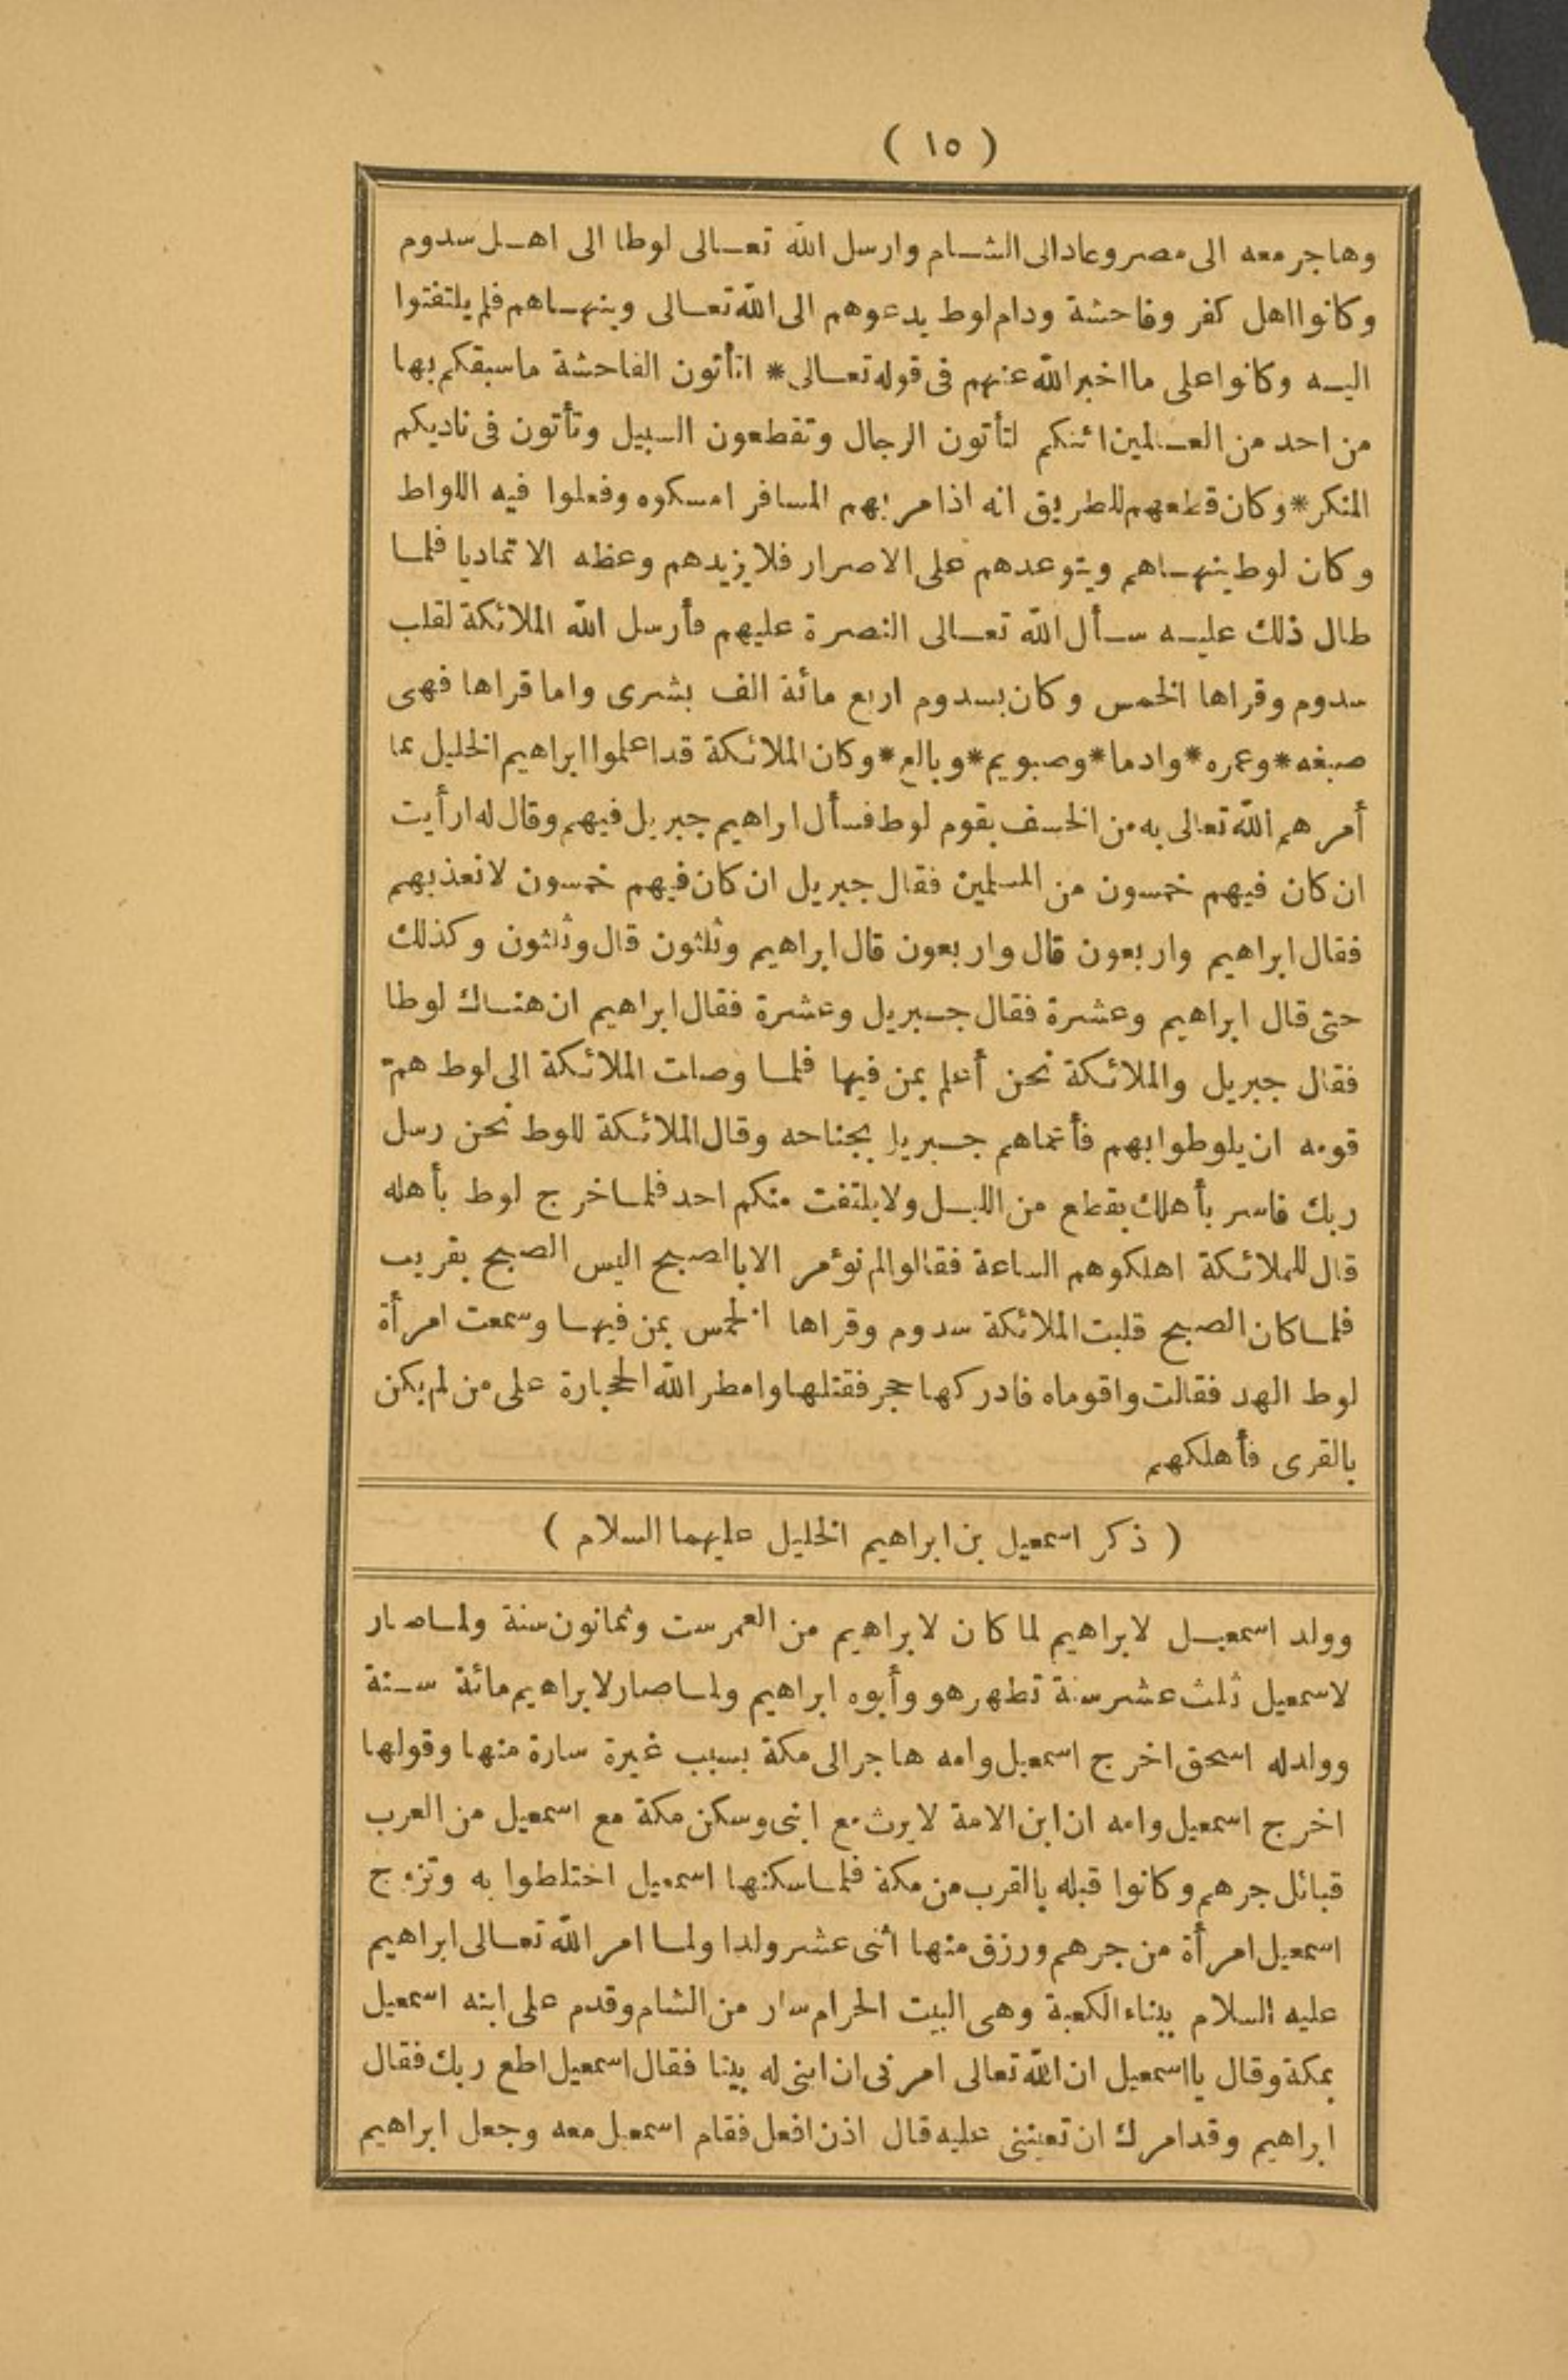 ( ١٥ )
وهاجر معه الى مصر وعاد الى الشام وارسل الله تعالى لوطا الى اهل سدوم
وكانوا اهل كفر وفاحشة ودام لوط يدعوهم الى الله تعالى وينهاهم فلم يلتفتوا
اليه وكانوا على ما اخبر الله عنهم فى قوله تعالى * اتأتون الفاحشة ماسبقكم بها
من احد من العالمين ائنكم لتأتون الرجال وتقطعون السبيل وتأتون فى ناديكم
المنكر * وكان قطعهم للطريق انه اذا مر بهم المسافر امسكوه وفعلوا فيه اللواط
وكان لوط ينهاهم ويتوعدهم على الاصرار فلا يزيدهم وعظه الا تماديا فلما
طال ذلك عليه سأل الله تعالى النصرة عليهم فأرسل الله الملائكة لقلب
سدوم وقراها الخمس وكان بسدوم اربع مائة الف بشرى واما قراها فهى
صبغه * وعمره * وادما * وصبويم * وبالع * وكان الملائكة قد اعلموا ابراهيم الخليل بما
أمرهم الله تعالى به من الخسف بقوم لوط فسأل ابراهيم جبريل فيهم وقال له ارأيت
ان كان فيهم خمسون من المسلمين فقال جبريل ان كان فيهم خمسون لا نعذبهم
فقال ابراهيم واربعون قال واربعون قال ابراهيم وثلثون قال وثلثون وكذلك
حتى قال ابراهيم وعشرة فقال جبريل وعشرة فقال ابراهيم ان هناك لوطا
فقال جبريل والملائكة نحن أعلم بمن فيها فلما وصلت الملائكة الى لوط همّ
قومه ان يلوطوا بهم فأعماهم جبريل بجناحه وقال الملائكة للوط نحن رسل
ربك فاسر بأهلك بقطع من الليل ولا يلتفت منكم احد فلما خرج لوط بأهله
قال للملائكة اهلكوهم الساعة فقالوا لم نؤمر الا باالصبح اليس الصبح بقريب
فلما كان الصبح قلبت الملائكة سدوم وقراها الخمس بمن فيها وسمعت امرأة
لوط الهد فقالت واقوماه فادركها حجر فقتلها وامطر الله الحجارة على من لم يكن
بالقرى فأهلكهم
( ذكر اسمعيل بن ابراهيم الخليل عليهما السلام )
وولد اسمعيل لابراهيم لما كان لابراهيم من العمر ست وثمانون سنة ولما صار
لاسمعيل ثلث عشر سنة تطهر هو وأبوه ابراهيم ولما صار لابراهيم مائة سنة
وولد له اسحق اخرج اسمعيل وامه هاجر الى مكة بسبب غيرة سارة منها وقولها
اخرج اسمعيل وامه ان ابن الامة لا يرث مع ابنى وسكن مكة مع اسمعيل من العرب
قبائل جرهم وكانوا قبله بالقرب من مكة فلما سكنها اسمعيل اختلطوا به وتزوج
اسمعيل امرأة من جرهم ورزق منها اثنى عشر ولدا ولما امر الله تعالى ابراهيم
عليه السلام ببناء الكعبة وهى البيت الحرام سار من الشام وقدم على ابنه اسمعيل
بمكة وقال يا اسمعيل ان الله تعالى امرنى ان ابنى له بيتا فقال اسمعيل اطع ربك فقال
ابراهيم وقد امرك ان تعيننى عليه قال اذن افعل فقام اسمعيل معه وجعل ابراهيم